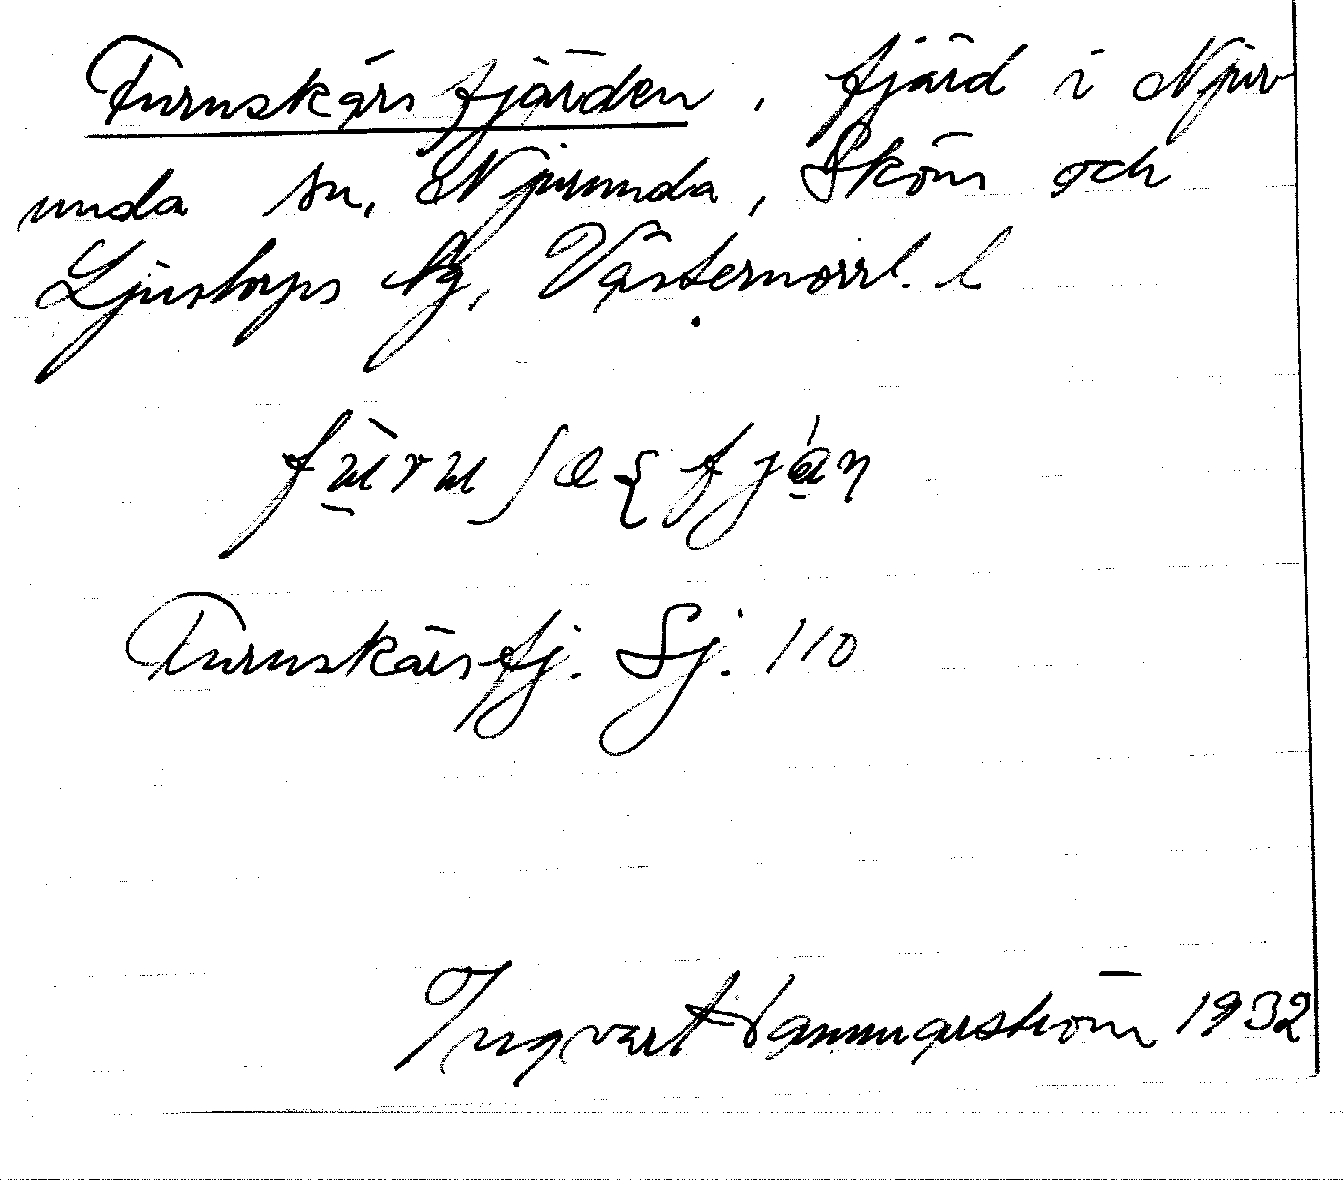 Furuskärsfjärden, fjärd i Njur-
unda sn, Njurunda, Sköns och
Ljustorps tg, Västernorrl. l
Furuskärsfj. Sj. 110
Ingvart Hammarström 1932